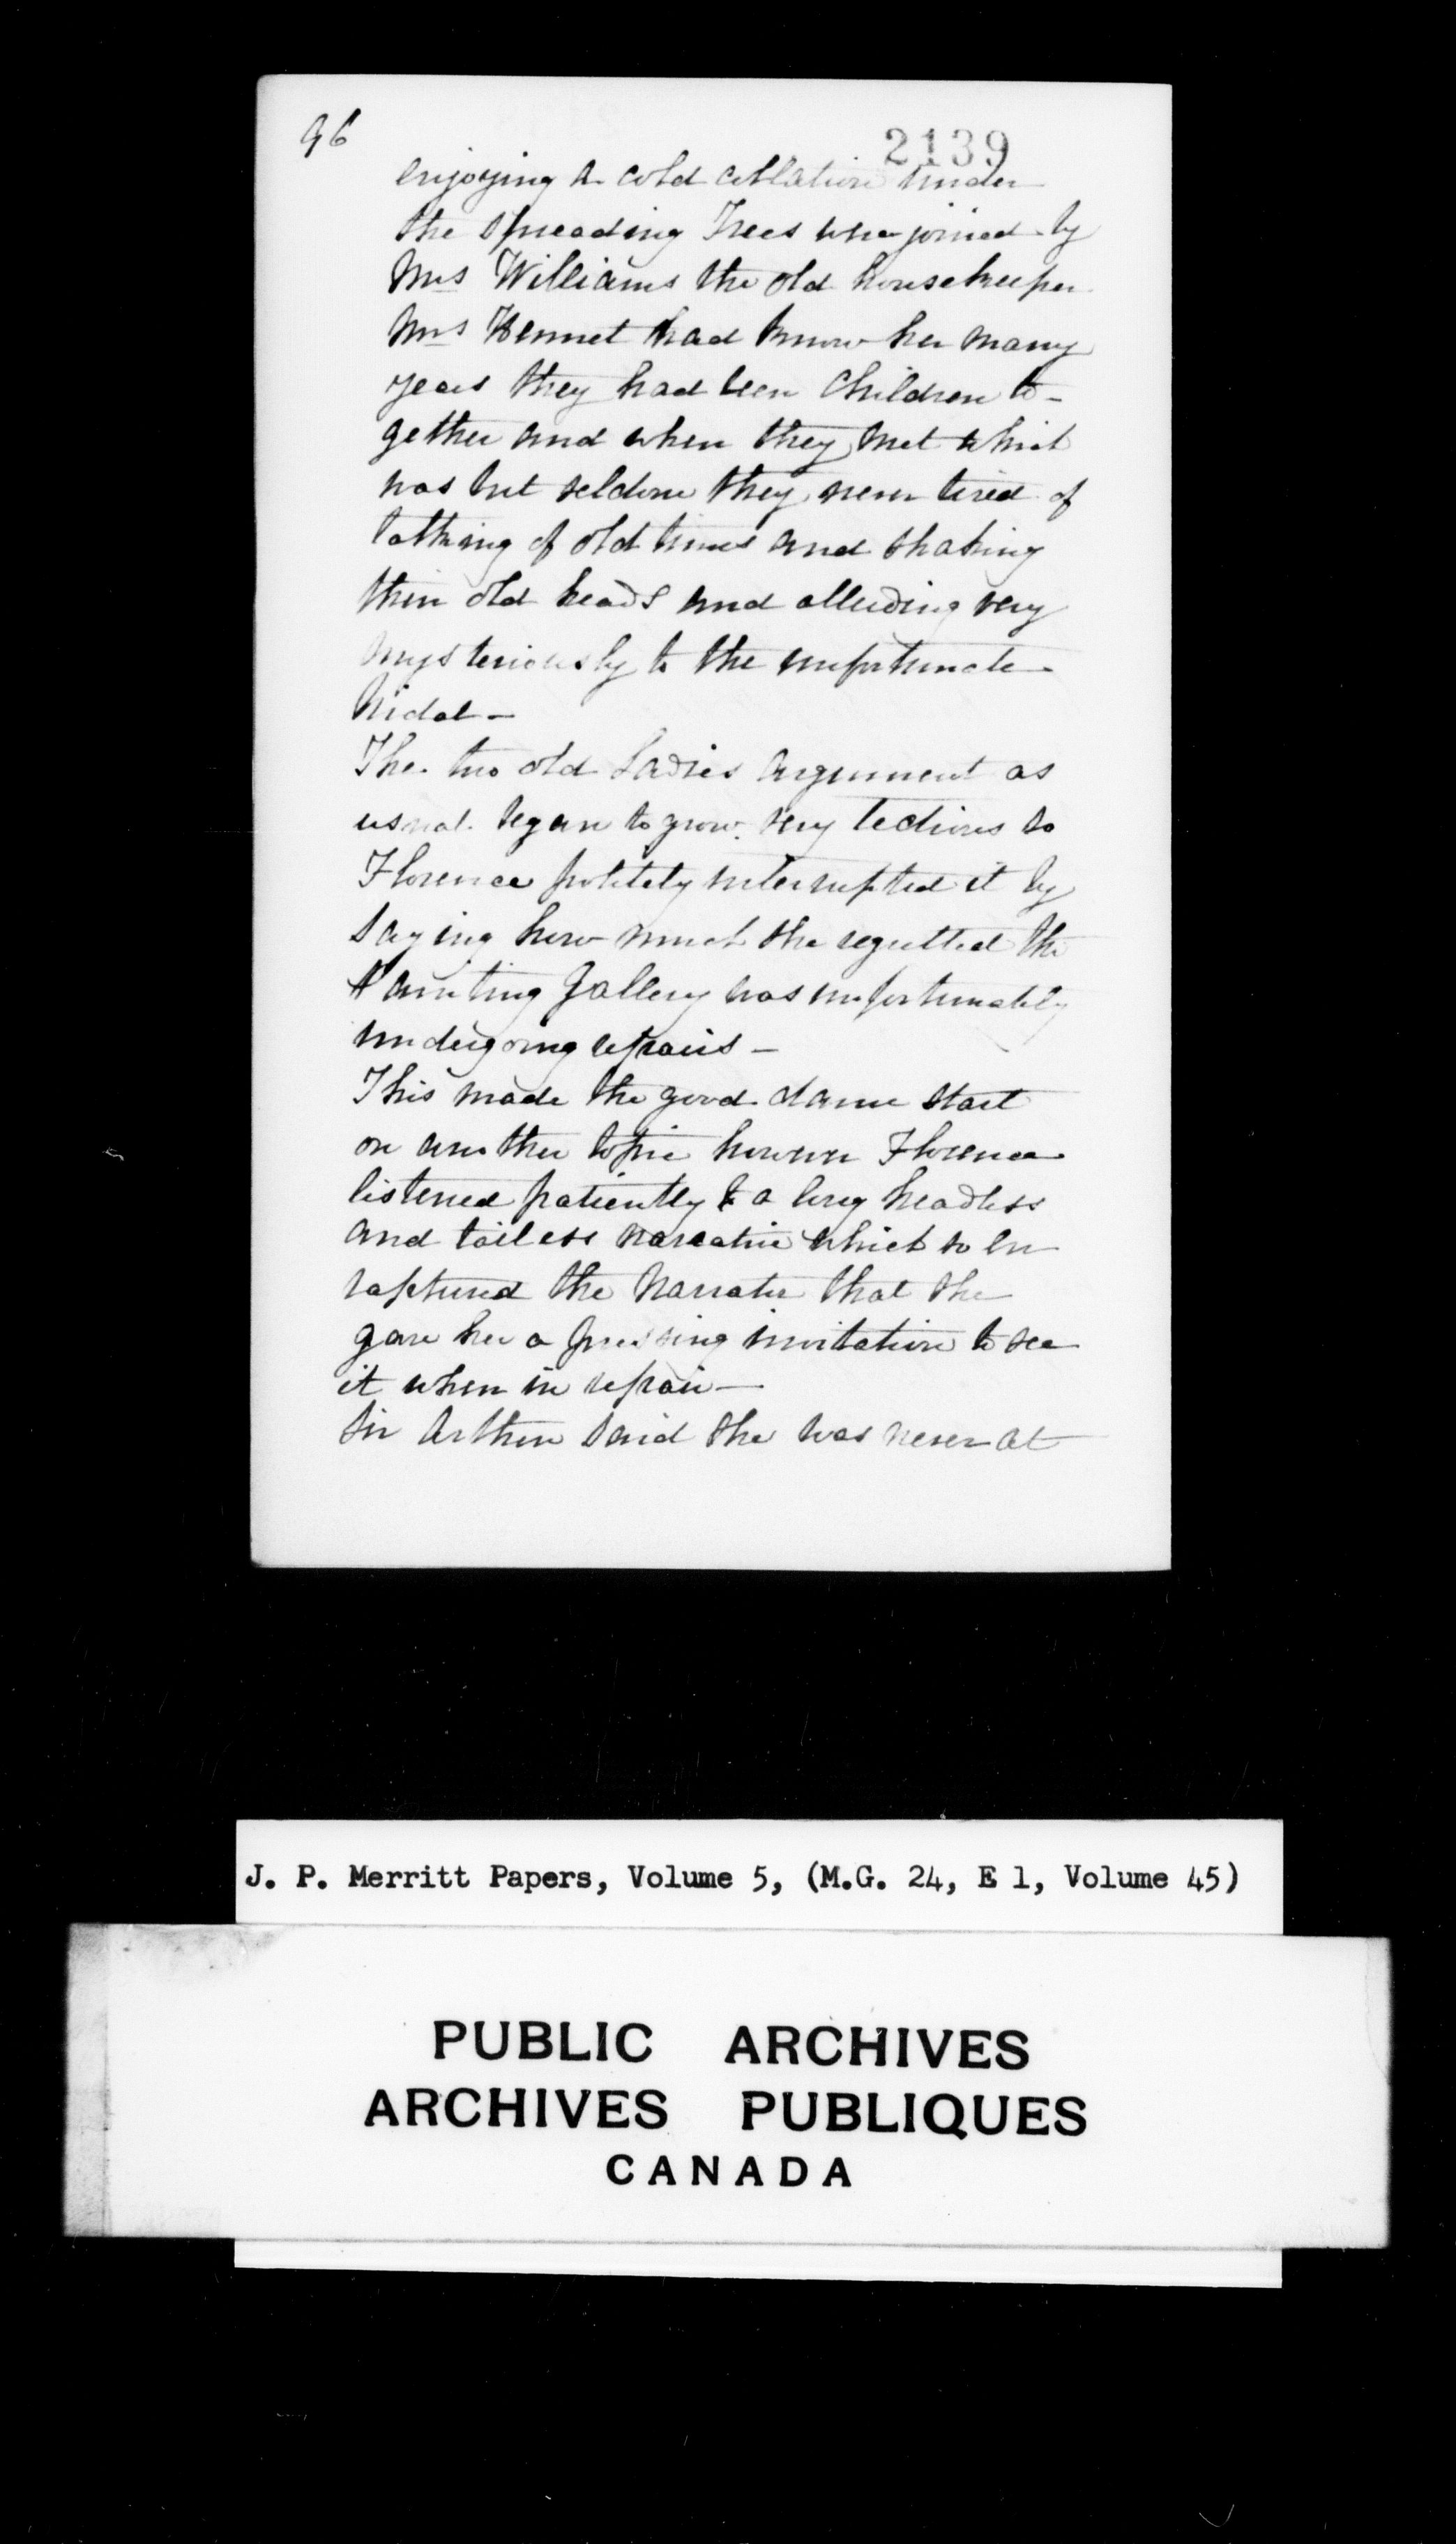 96
2139
enjoying a cold collation under
the spreading Trees when joined by
Mrs Williams the old housekeeper
Mrs Kennet had know her many
years they had been Children to-
gether and when they met which
was but seldom they never tired of
talking of old times and shaking
their old heads and alluding very
mysteriously to the unfortunate
Nidal -
The two old Ladies argument as
usual began to grow very tedious so
Florence politely interrupted it by
saying how much she regretted the
Painting Gallery was unfortunately
undergoing repairs -
This made the good dame start
on another topic however Florence
listened patiently to a long headless
and tailess narrative which so en
raptured the Narrator that she
gave her a pressing invitation to see
it when in repair -
Sir Arthur said she was never at
J. P. Merritt Papers, Volume 5, (M.G. 24, E 1, Volume 45)
PUBLIC ARCHIVES
ARCHIVES PUBLIQUES
CANADA